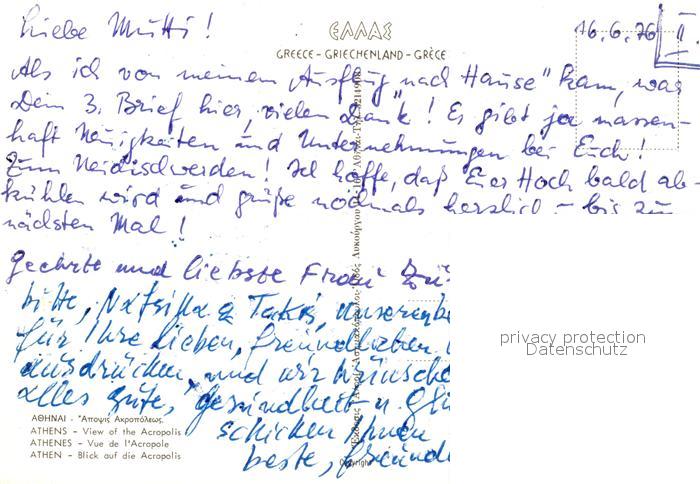 Liebe Mutti!
ΕΛΛΑΣ
16.6.76
II.
GREECE - GRIECHENLAND - GRÈCE
Als ich von meinem „Ausflug nach Hause" kam, war
Dein 3. Brief hier, vielen Dank! Es gibt ja massen-
haft Neuigkeiten und Unternehmungen bei Euch!
Zum Neidischwerden! Ich hoffe, daß Euer Hoch bald ab-
kühlen wird und grüße nochmals herzlich - bis zum
nächsten Mal!
Geehrte und liebste Frau
bitte, &
für Ihre lieben, freundlichen
ausdrücken, und wir wünsche
alles gute, gesundheit u. Glü
schicken Ihnen
beste, freundl
privacy protection
Datenschutz
ΑΘΗΝΑΙ - Ἄποψις Ἀκροπόλεως.
ATHENS - View of the Acropolis
ATHENES - Vue de l'Acropole
ATHEN - Blick auf die Acropolis
Copyright